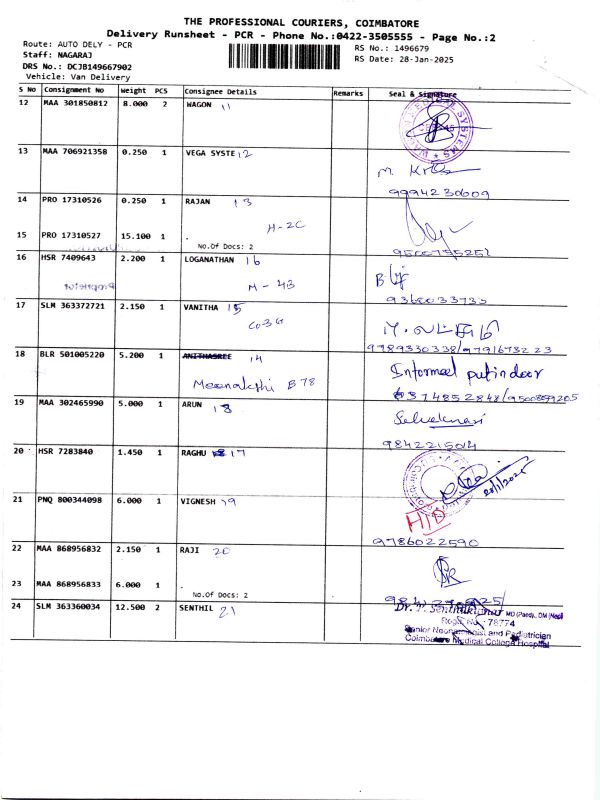 THE PROFESSIONAL COURIERS, COIMBATORE
Delivery Runsheet - PCR - Phone No.:0422-3505555 - Page No.:2
Route: AUTO DELY - PCR
RS No.: 1496679
Staff: NAGARAJ
RS Date: 28-Jan-2025
DRS No.: DCJB149667902
Vehicle: Van Delivery
S No Consignment No Weight PCS Consignee Details Remarks Seal & Signature
12 MAA 301850812 8.000 2 WAGON 11
13 MAA 706921358 0.250 1 VEGA SYSTE 12
9994230609
14 PRO 17310526 0.250 1 RAJAN 13
H-2C
15 PRO 17310527 15.100 1 .
No.Of Docs: 2
9500755251
16 HSR 7409643 2.200 1 LOGANATHAN 16
M-4B
9360033733
17 SLM 363372721 2.150 1 VANITHA 15
Co-3G
9789330338/9791673223
18 BLR 501005220 5.200 1 ANITHASREE 14
Meenakshi B 78
Informed put indoor
6374852848/9500859205
19 MAA 302465990 5.000 1 ARUN 18
9842215014
20 HSR 7283840 1.450 1 RAGHU 17
28/1/2025
21 PNQ 800344098 6.000 1 VIGNESH 19
H/D
9786022590
22 MAA 868956832 2.150 1 RAJI 20
23 MAA 868956833 6.000 1
No.Of Docs: 2
24 SLM 363360034 12.500 2 SENTHIL 21
Dr. T. Senthilkumar MD (Paed)., DM (Neo)
Regd. No.: 78774
Senior Neonatologist and Pediatrician
Coimbatore Medical College Hospital